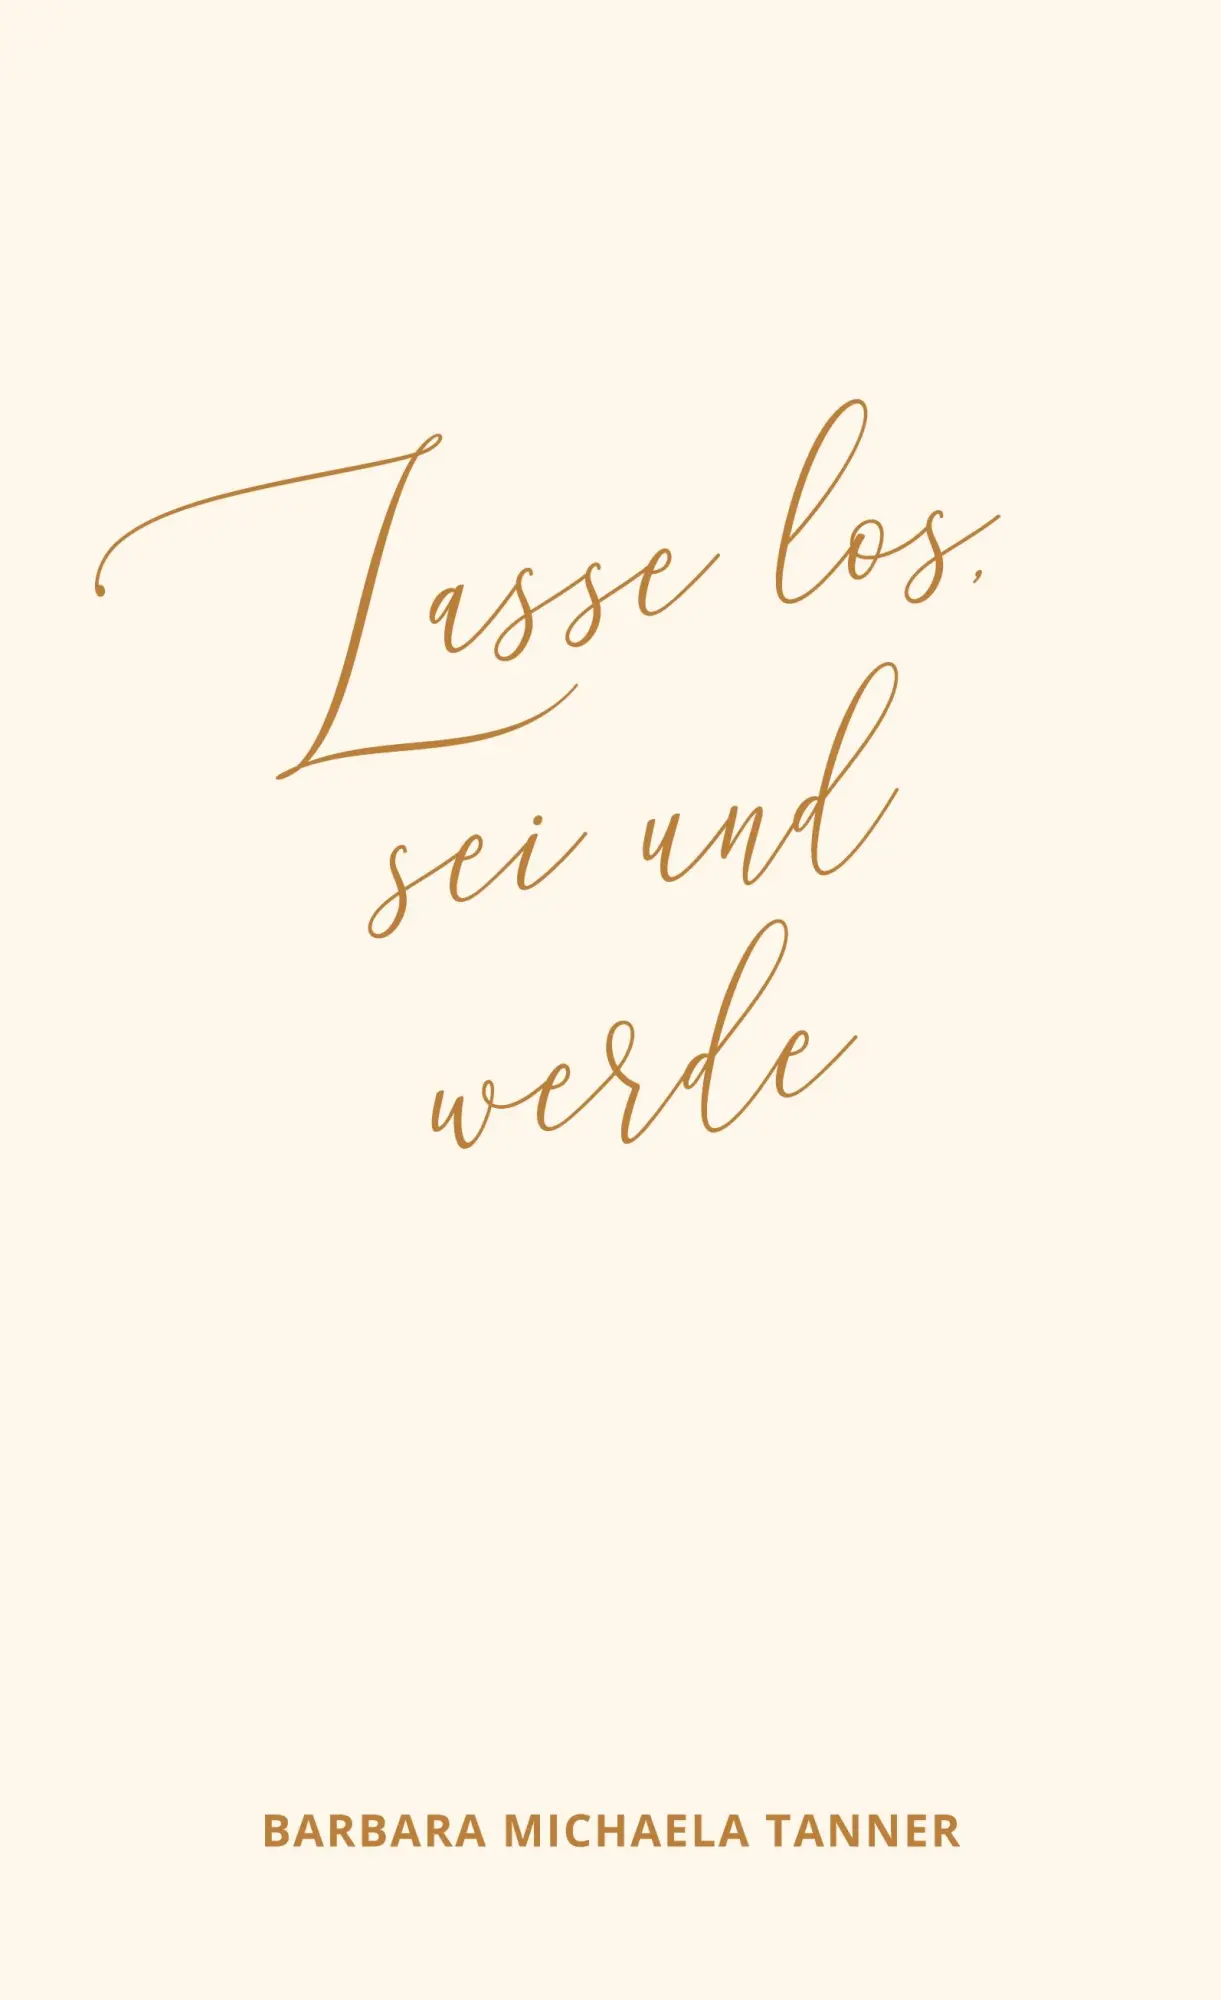 Lasse los,
sei und
werde
BARBARA MICHAELA TANNER